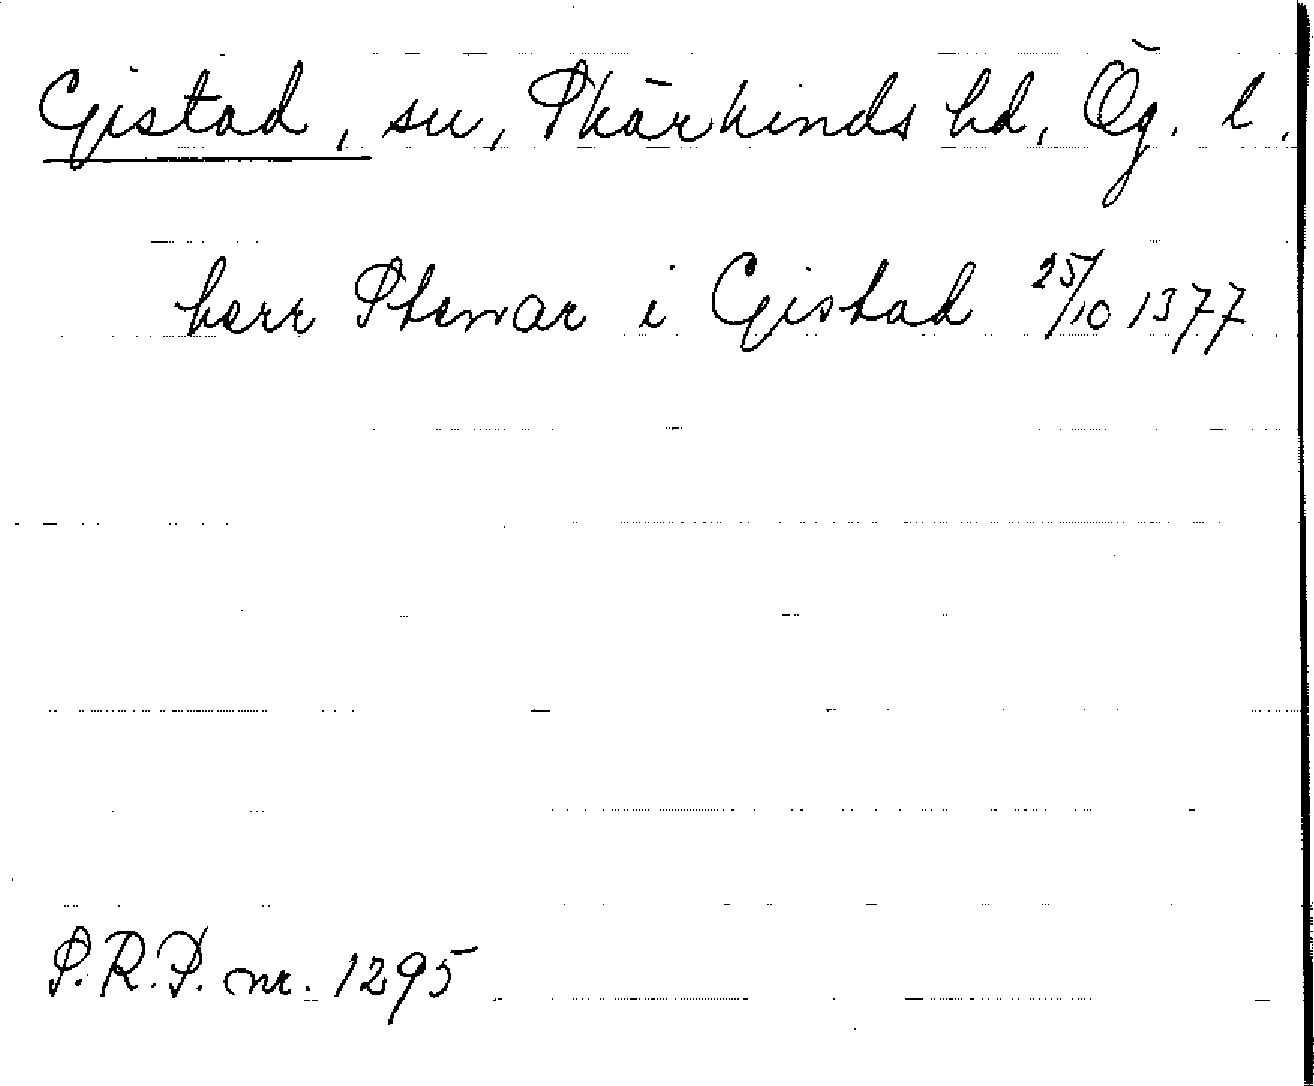 Gistad, sn, Skärkinds hd, Ög. l.
herr Stenar i Gistad 25/10 1377
S.R.P. nr. 1295